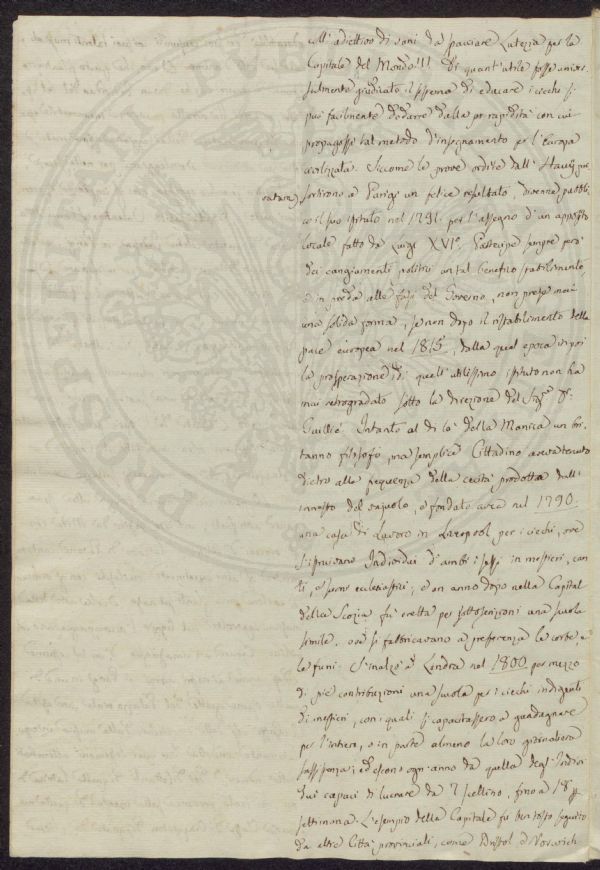 all' adiettivo di sani da passare Lutezia per la
Capitale del Mondo!!! Di quant'utile fosse univer
salmente giudicato il sistema di educare i ciechi si
può facilmente dedurre dalla gr. rapidità con cui
propagossi tal metodo d'insegnamento per l'Europa
civilizzata. Siccome le prove ordite dall' Haüy
sortirono a Parigi un felice resultato, divenne pubbli
co il suo istituto nel 1791. per l'assegno d'un apposito
locale fatto da Luigi XVIº. Partecipe sempre però
dei cangiamenti politici un tal benefico stabilimento
e in preda alle fasi del Governo, non prese mai
una solida forma, se non dopo il ristabilimento della
pace europea nel 1815, dalla qual epoca in poi
la prosperazione di quell' utilissimo istituto non ha
mai retrogradato sotto la direzione del
Guillié. Intanto al di là della Manica un bri
tanno filosofo, ma semplice Cittadino aveva tenuto
dietro alla frequenza della cecità prodotta dall'
innesto del vajuolo, e fondato aveva nel 1790.
una casa di Lavoro in Liverpool per i ciechi, ove
s'istruivano Individui d'ambi i sessi in mestieri, can
ti, e suoni ecclesiastici; e un anno dopo nella Capital
della Scozia fù eretta per sottoscrizioni una scuola
simile, ove si fabbricavano a preferenza le corbe, e
le funi. S'inalzò a Londra nel 1800 per mezzo
di pie contribuzioni una scuola per i ciechi indigenti
di mestieri, con i quali si capacitassero a guadagnare
per l'intiero, o in parte almeno la loro giornaliera
sussistenza; ed escono ogni anno da quella degl' Indivi
dui capaci di lucrare da 7 scellino, fino a 18 p
settimana. L'esempio della Capitale fu ben tosto seguito
da altre Città provinciali, come Bristol e Norwich